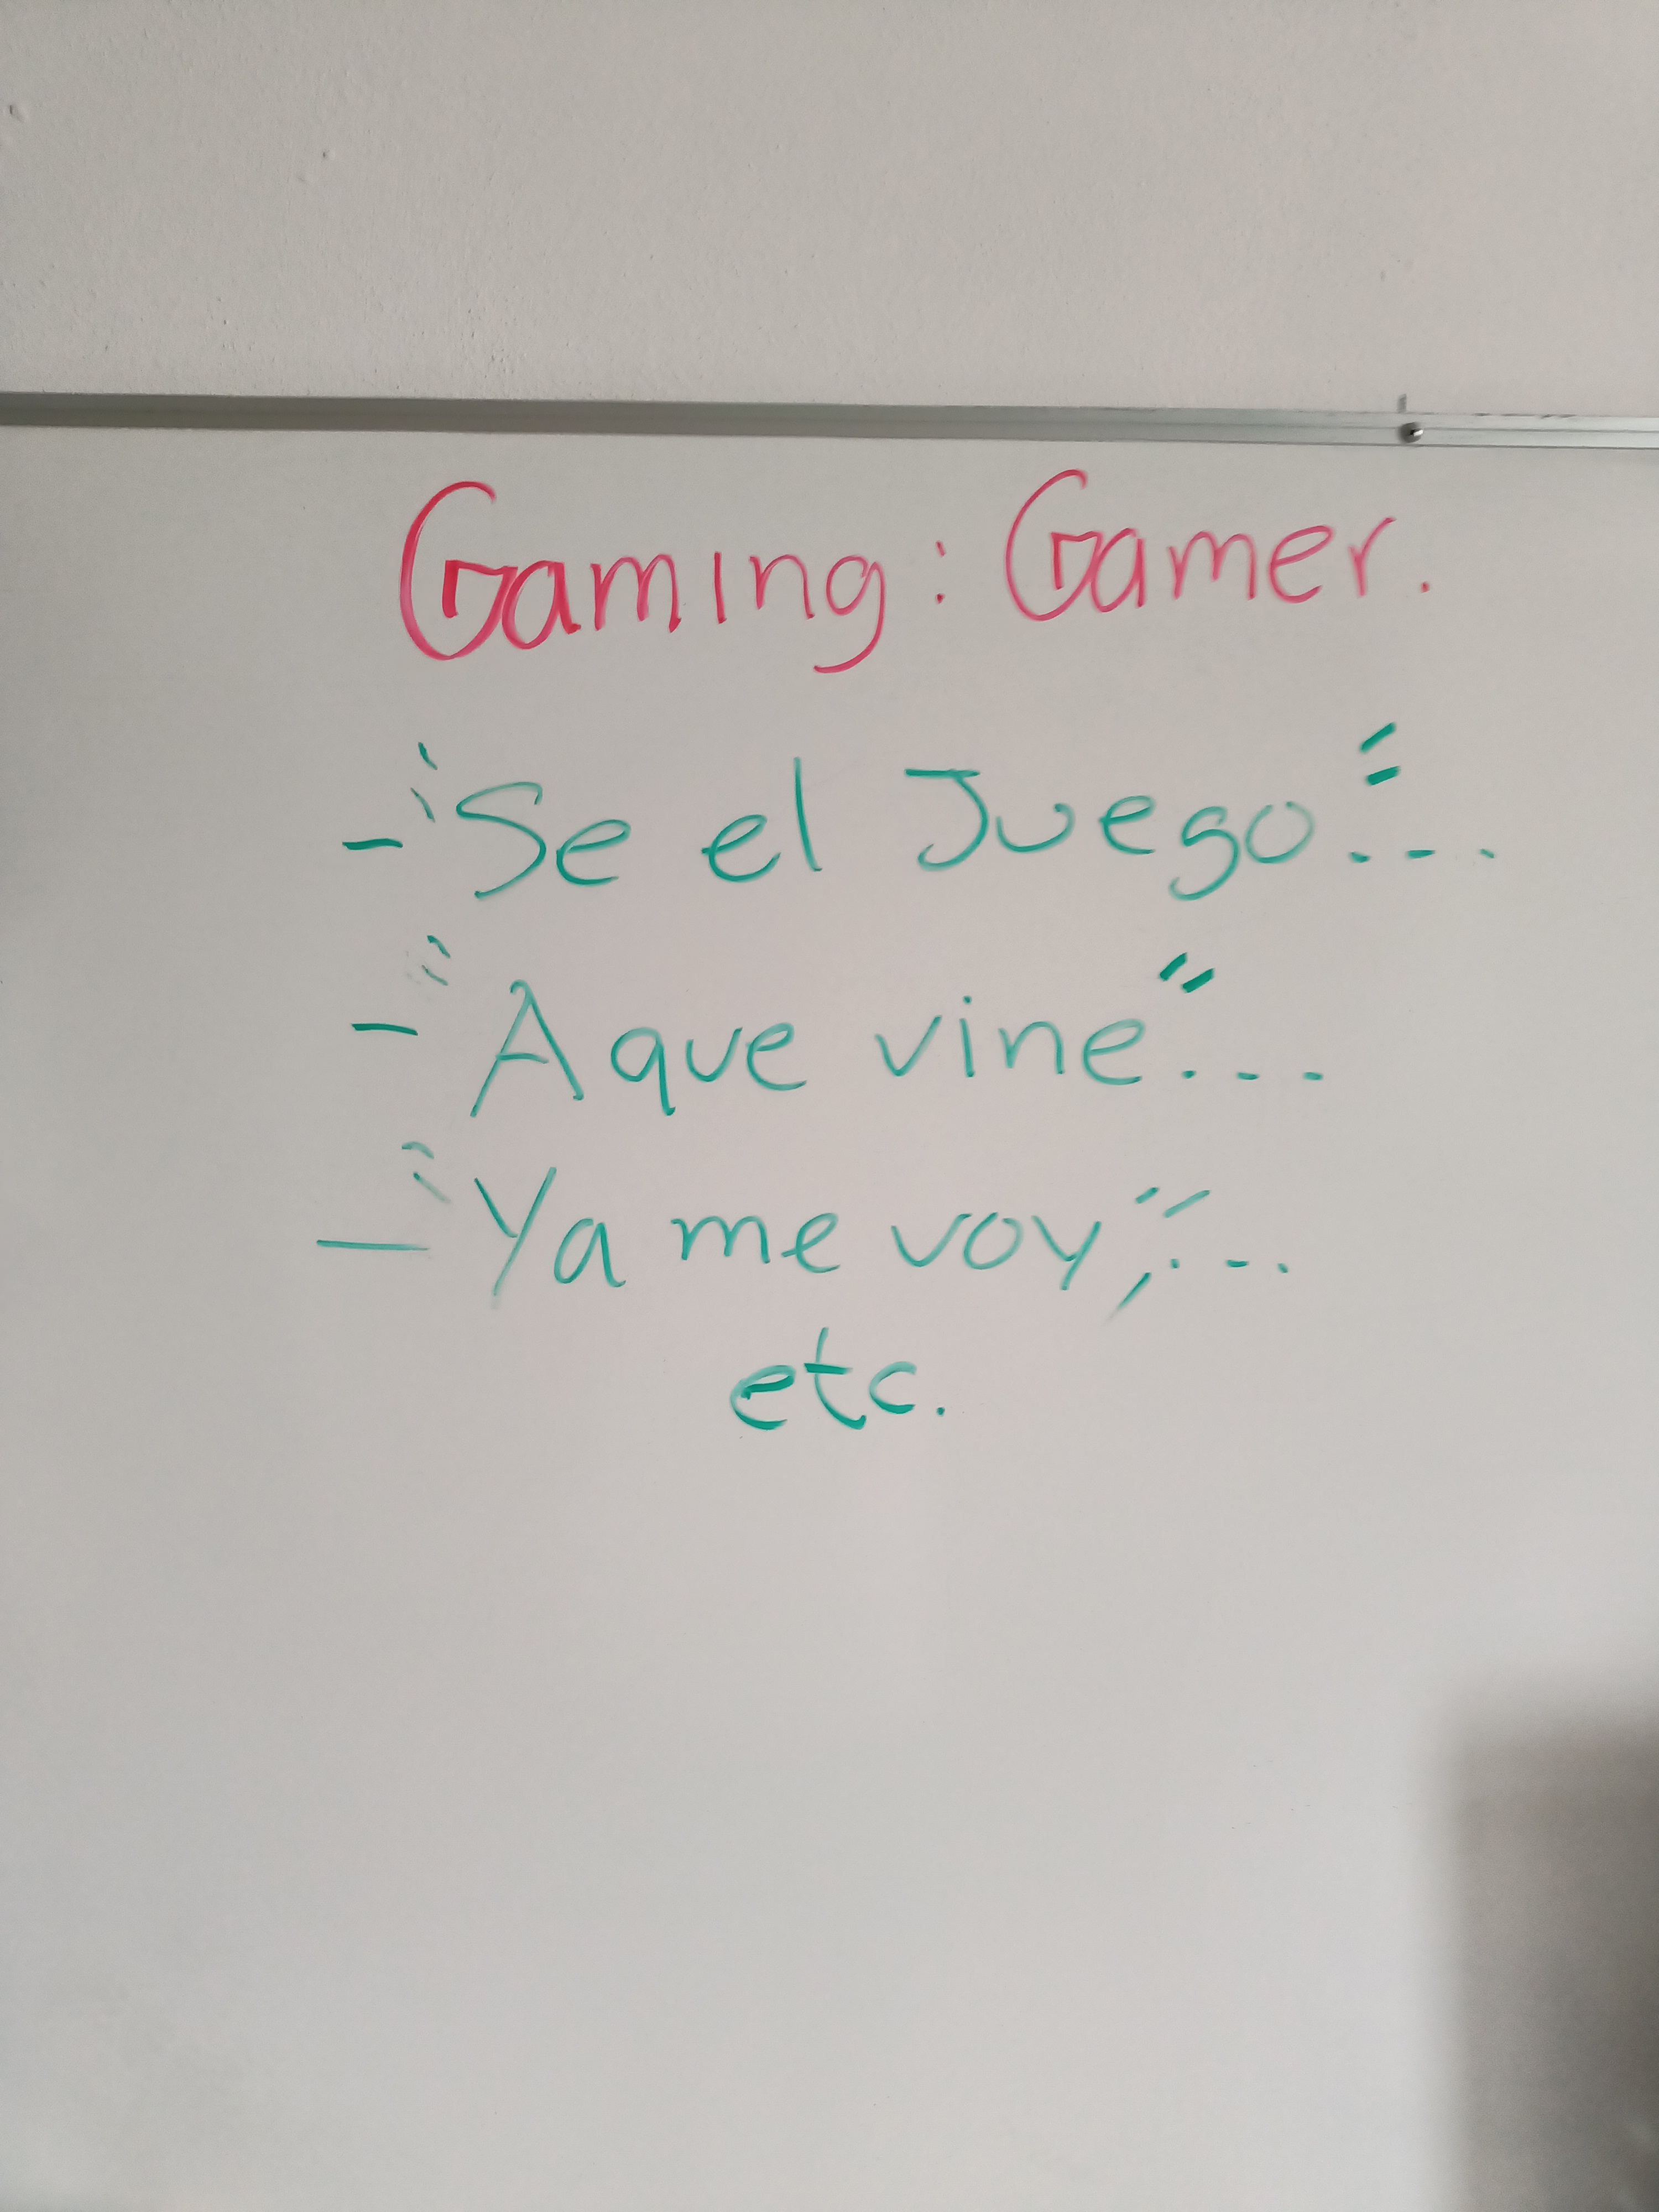 Gaming: Gamer.
- "Se el Juego"...
- "A que vine"...
- "Ya me voy,"...
etc.